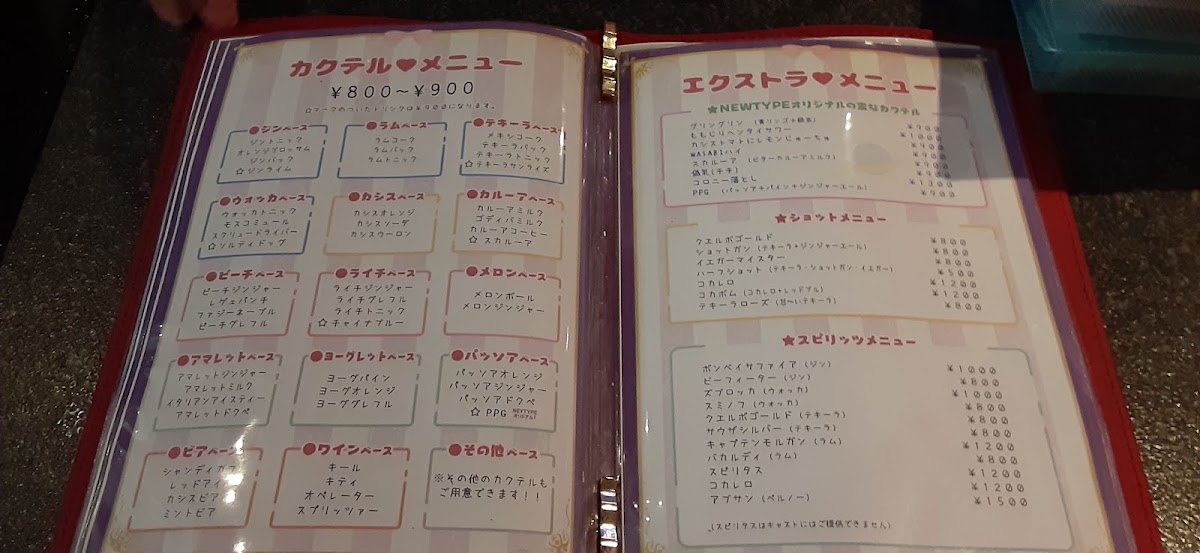 カクテル♥メニュー
￥800～￥900
☆マークのついたドリンクは￥900になります。
●ジンベース
ジントニック
オレンジブロッサム
ジンバック
☆ジンライム
●ラムベース
ラムコーク
ラムバック
ラムトニック
●テキーラベース
メキシコーク
テキーラバック
テキーラトニック
☆テキーラサンライズ
●ウォッカベース
ウォッカトニック
モスコミュール
スクリュードライバー
☆ソルティドッグ
●カシスベース
カシスオレンジ
カシスソーダ
カシスウーロン
●カルーアベース
カルーアミルク
ゴディバミルク
カルーアコーヒー
☆スカルーア
●ピーチベース
ピーチジンジャー
レゲエパンチ
ファジーネーブル
ピーチグレフル
●ライチベース
ライチジンジャー
ライチグレフル
ライチトニック
☆チャイナブルー
●メロンベース
メロンボール
メロンジンジャー
●アマレットベース
アマレットジンジャー
アマレットミルク
イタリアンアイスティー
アマレットドクペ
●ヨーグレットベース
ヨーグパイン
ヨーグオレンジ
ヨーググレフル
●パッソアベース
パッソアオレンジ
パッソアジンジャー
パッソアドクペ
☆PPG NEWTYPEオリジナル!
●ビアベース
シャンディガフ
レッドアイ
カシスビア
ミントビア
●ワインベース
キール
キティ
オペレーター
スプリッツァー
●その他ベース
※その他のカクテルも
ご用意できます！！
エクストラ♥メニュー
★NEWTYPEオリジナルの変なカクテル
グリングリン (青リンゴ+緑茶) ￥900
ももじりヘンタイサワー ￥1000
カシストマトにレモンじゅーちゅ ￥900
WASABIハイ ￥900
スカルーア (ビターカルーアミルク) ￥900
偽乳(チチ) ￥900
コロニー落とし ￥1300
PPG (パッソア+パイン+ジンジャーエール) ￥900
★ショットメニュー
クエルボゴールド ￥800
ショットガン (テキーラ+ジンジャーエール) ￥800
イエガーマイスター ￥800
ハーフショット (テキーラ・ショットガン・イエガー) ￥500
コカレロ ￥1200
コカボム (コカレロ+レッドブル) ￥1200
テキーラローズ (甘～いテキーラ) ￥800
★スピリッツメニュー
ボンベイサファイア (ジン) ￥1000
ビーフィーター (ジン) ￥800
ズブロッカ (ウォッカ) ￥1000
スミノフ (ウォッカ) ￥800
クエルボゴールド (テキーラ) ￥800
サウザシルバー (テキーラ) ￥800
キャプテンモルガン (ラム) ￥1200
バカルディ (ラム) ￥800
スピリタス ￥1200
コカレロ ￥1200
アブサン (ペルノー) ￥1500
(スピリタスはキャストにはご提供できません)